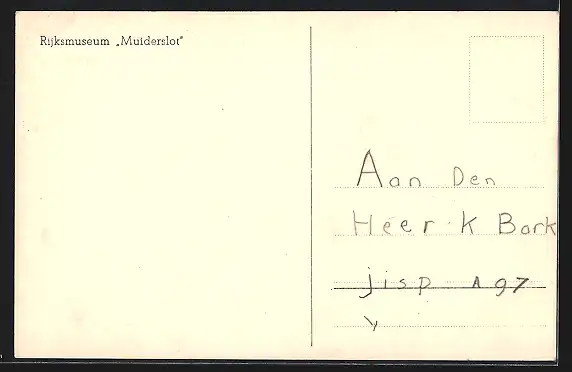 Rijksmuseum „Muiderslot"
Aan Den
Heer K Bark
jisp A 97